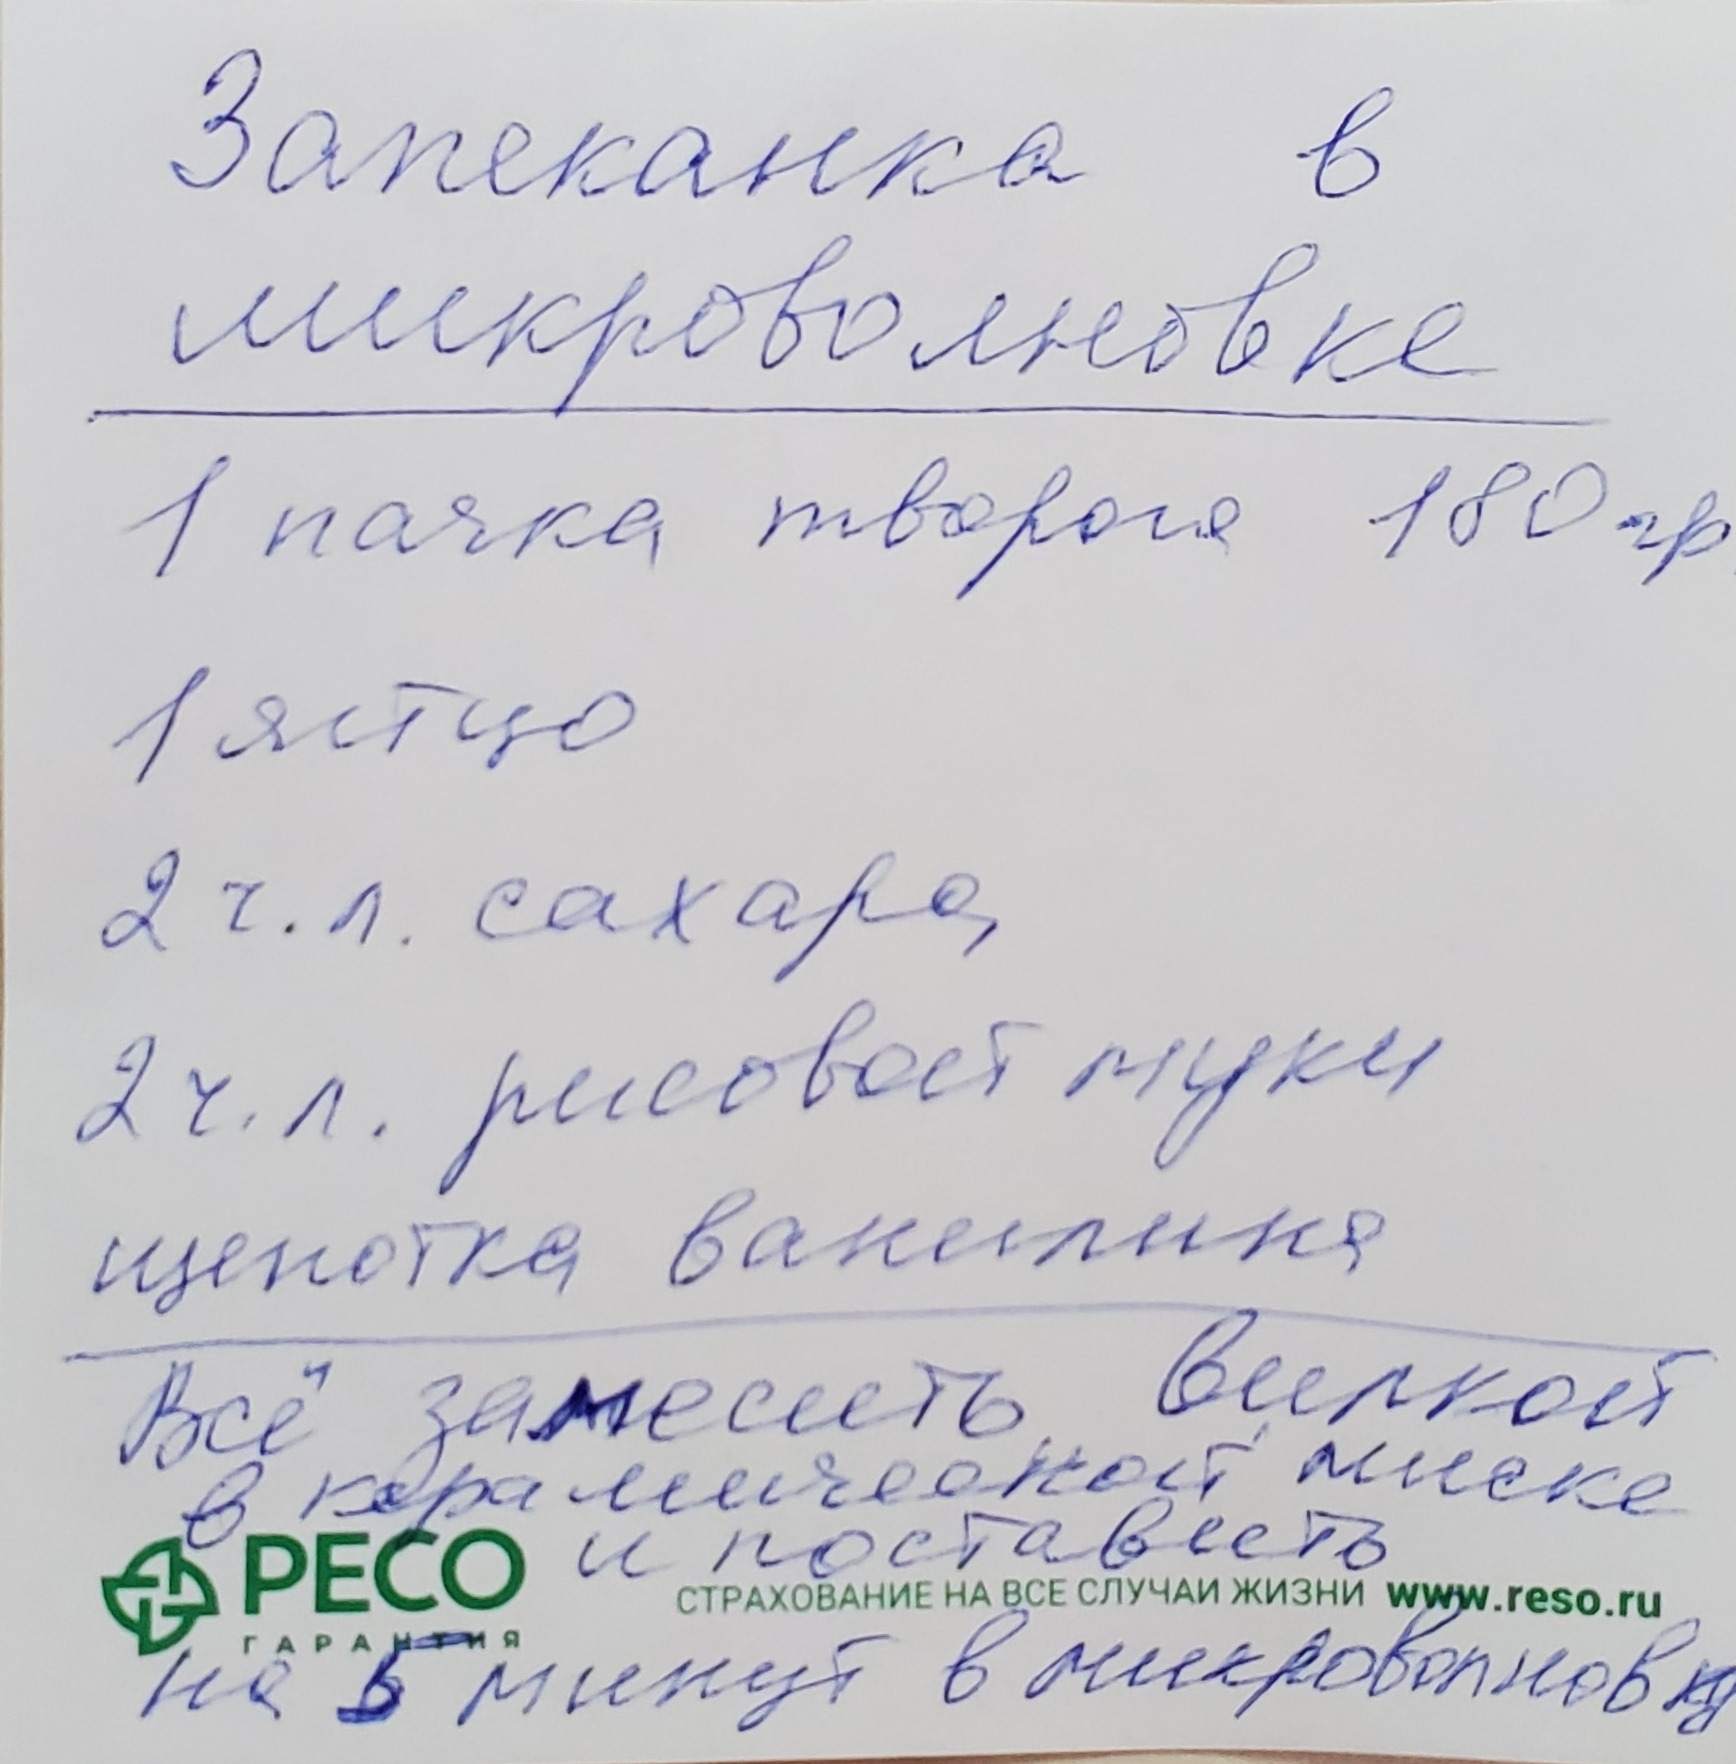 Запеканка в
микроволновке
1 пачка творога 180 гр.
1 яйцо
2 ч. л. сахара
2 ч. л. рисовой муки
щепотка ванилина
Всё замесить вилкой
в керамической миске
и поставить
РЕСО
ГАРАНТИЯ
СТРАХОВАНИЕ НА ВСЕ СЛУЧАИ ЖИЗНИ www.reso.ru
на 5 минут в микроволновку